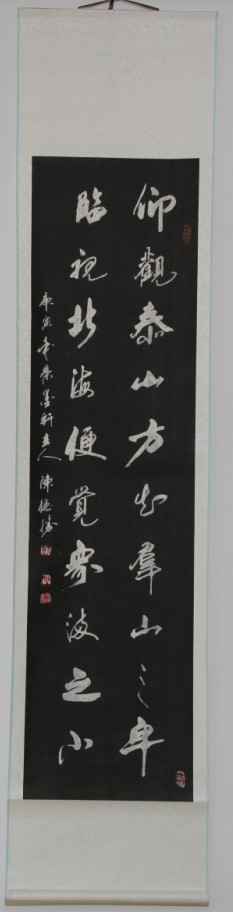 仰觀泰山方知羣山之卑
臨視北海便覺衆海之小
庚寅年 墨軒主人 陳德勝